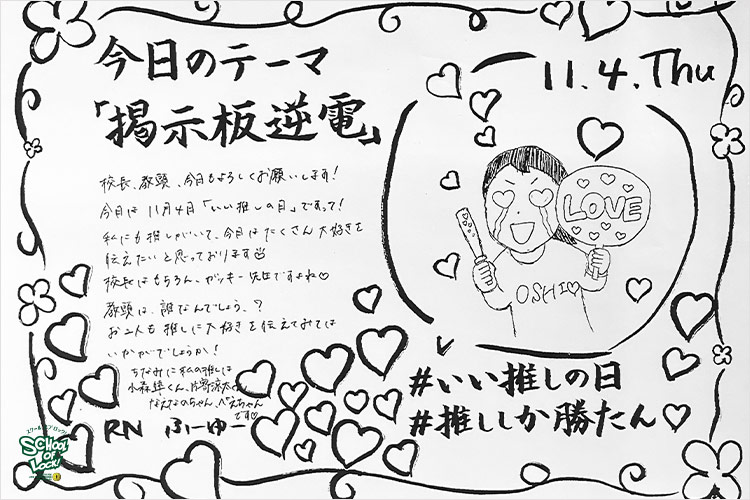 今日のテーマ
「掲示板逆電」
11.4.Thu
校長、教頭、今日もよろしくお願いします!
今日は11月4日「いい推しの日」ですって!
私にも推しがいて、今日はたくさん大好きを
伝えたいと思っております
校長はもちろん、ガッキー先生ですよね♡
教頭は、誰なんでしょう、?
お二人も推しに大好きを伝えてみては
いかがでしょうか!
ちなみに私の推しは
小森隼くん、片寄涼太くん
なえなのちゃん、
です♡
RN ふーゆー
LOVE
OSHI♡
#いい推しの日
#推ししか勝たん♡
スクールオブロック!
SCHOOL
OF
LOCK!